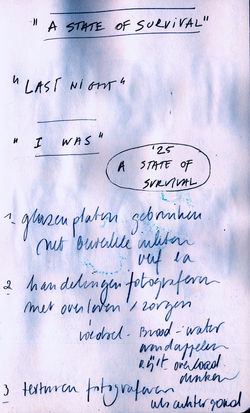 "A STATE OF SURVIVAL"
"LAST NIGHT"
"I WAS"
'25
A STATE OF
SURVIVAL
1 glazen platen gebruiken
met
verf ea
2 handelingen fotograferen
met overleven / zorgen
voedsel - Brood - water
aardappelen
rijst overload
denken
3 texturen fotograferen
als achtergrond